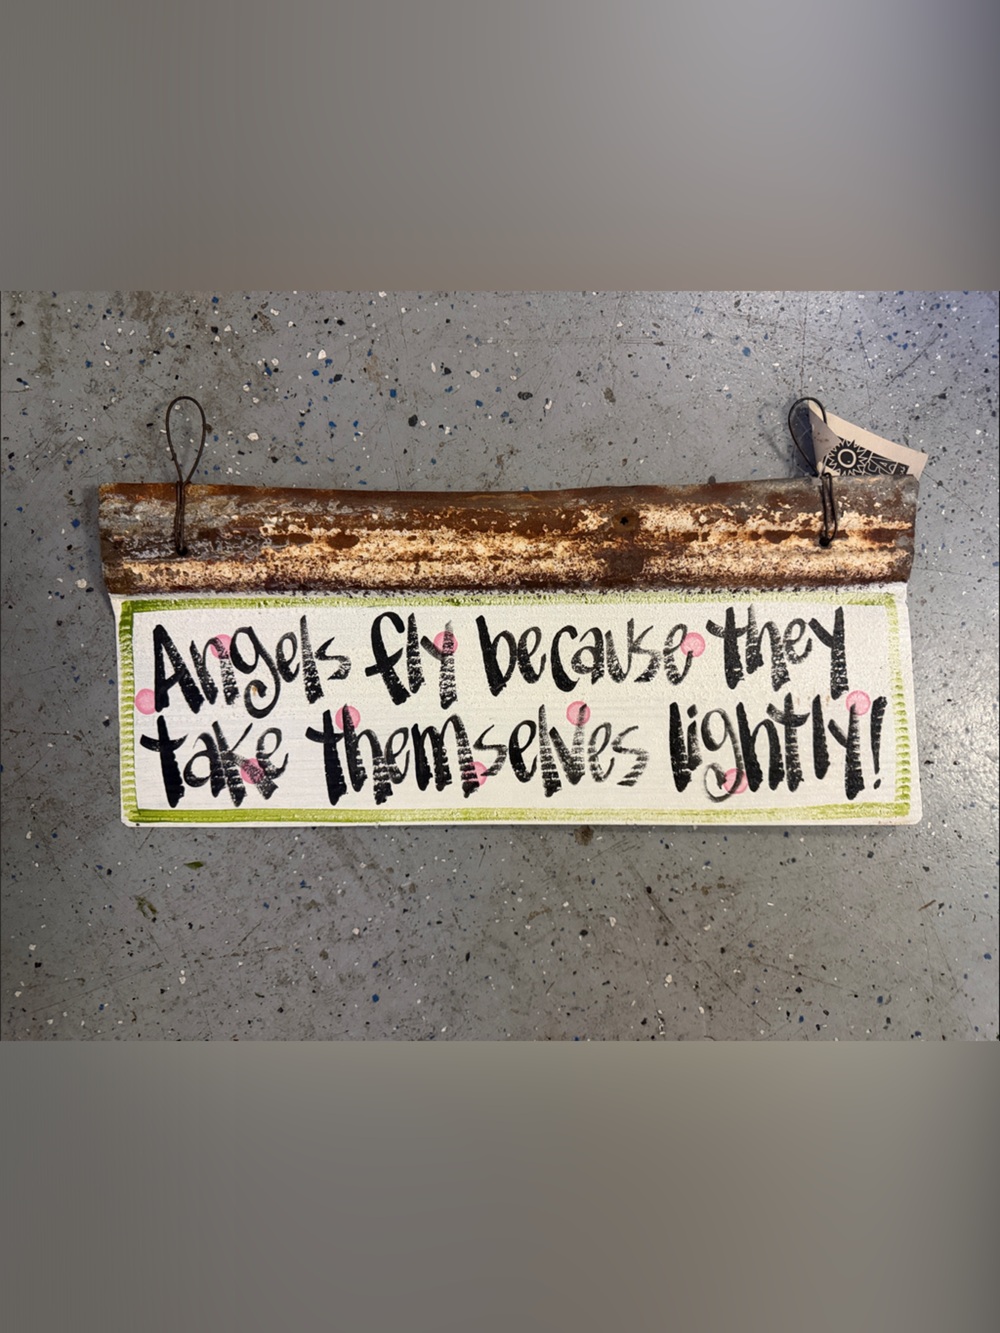 Angels fly because they
take themselves lightly!